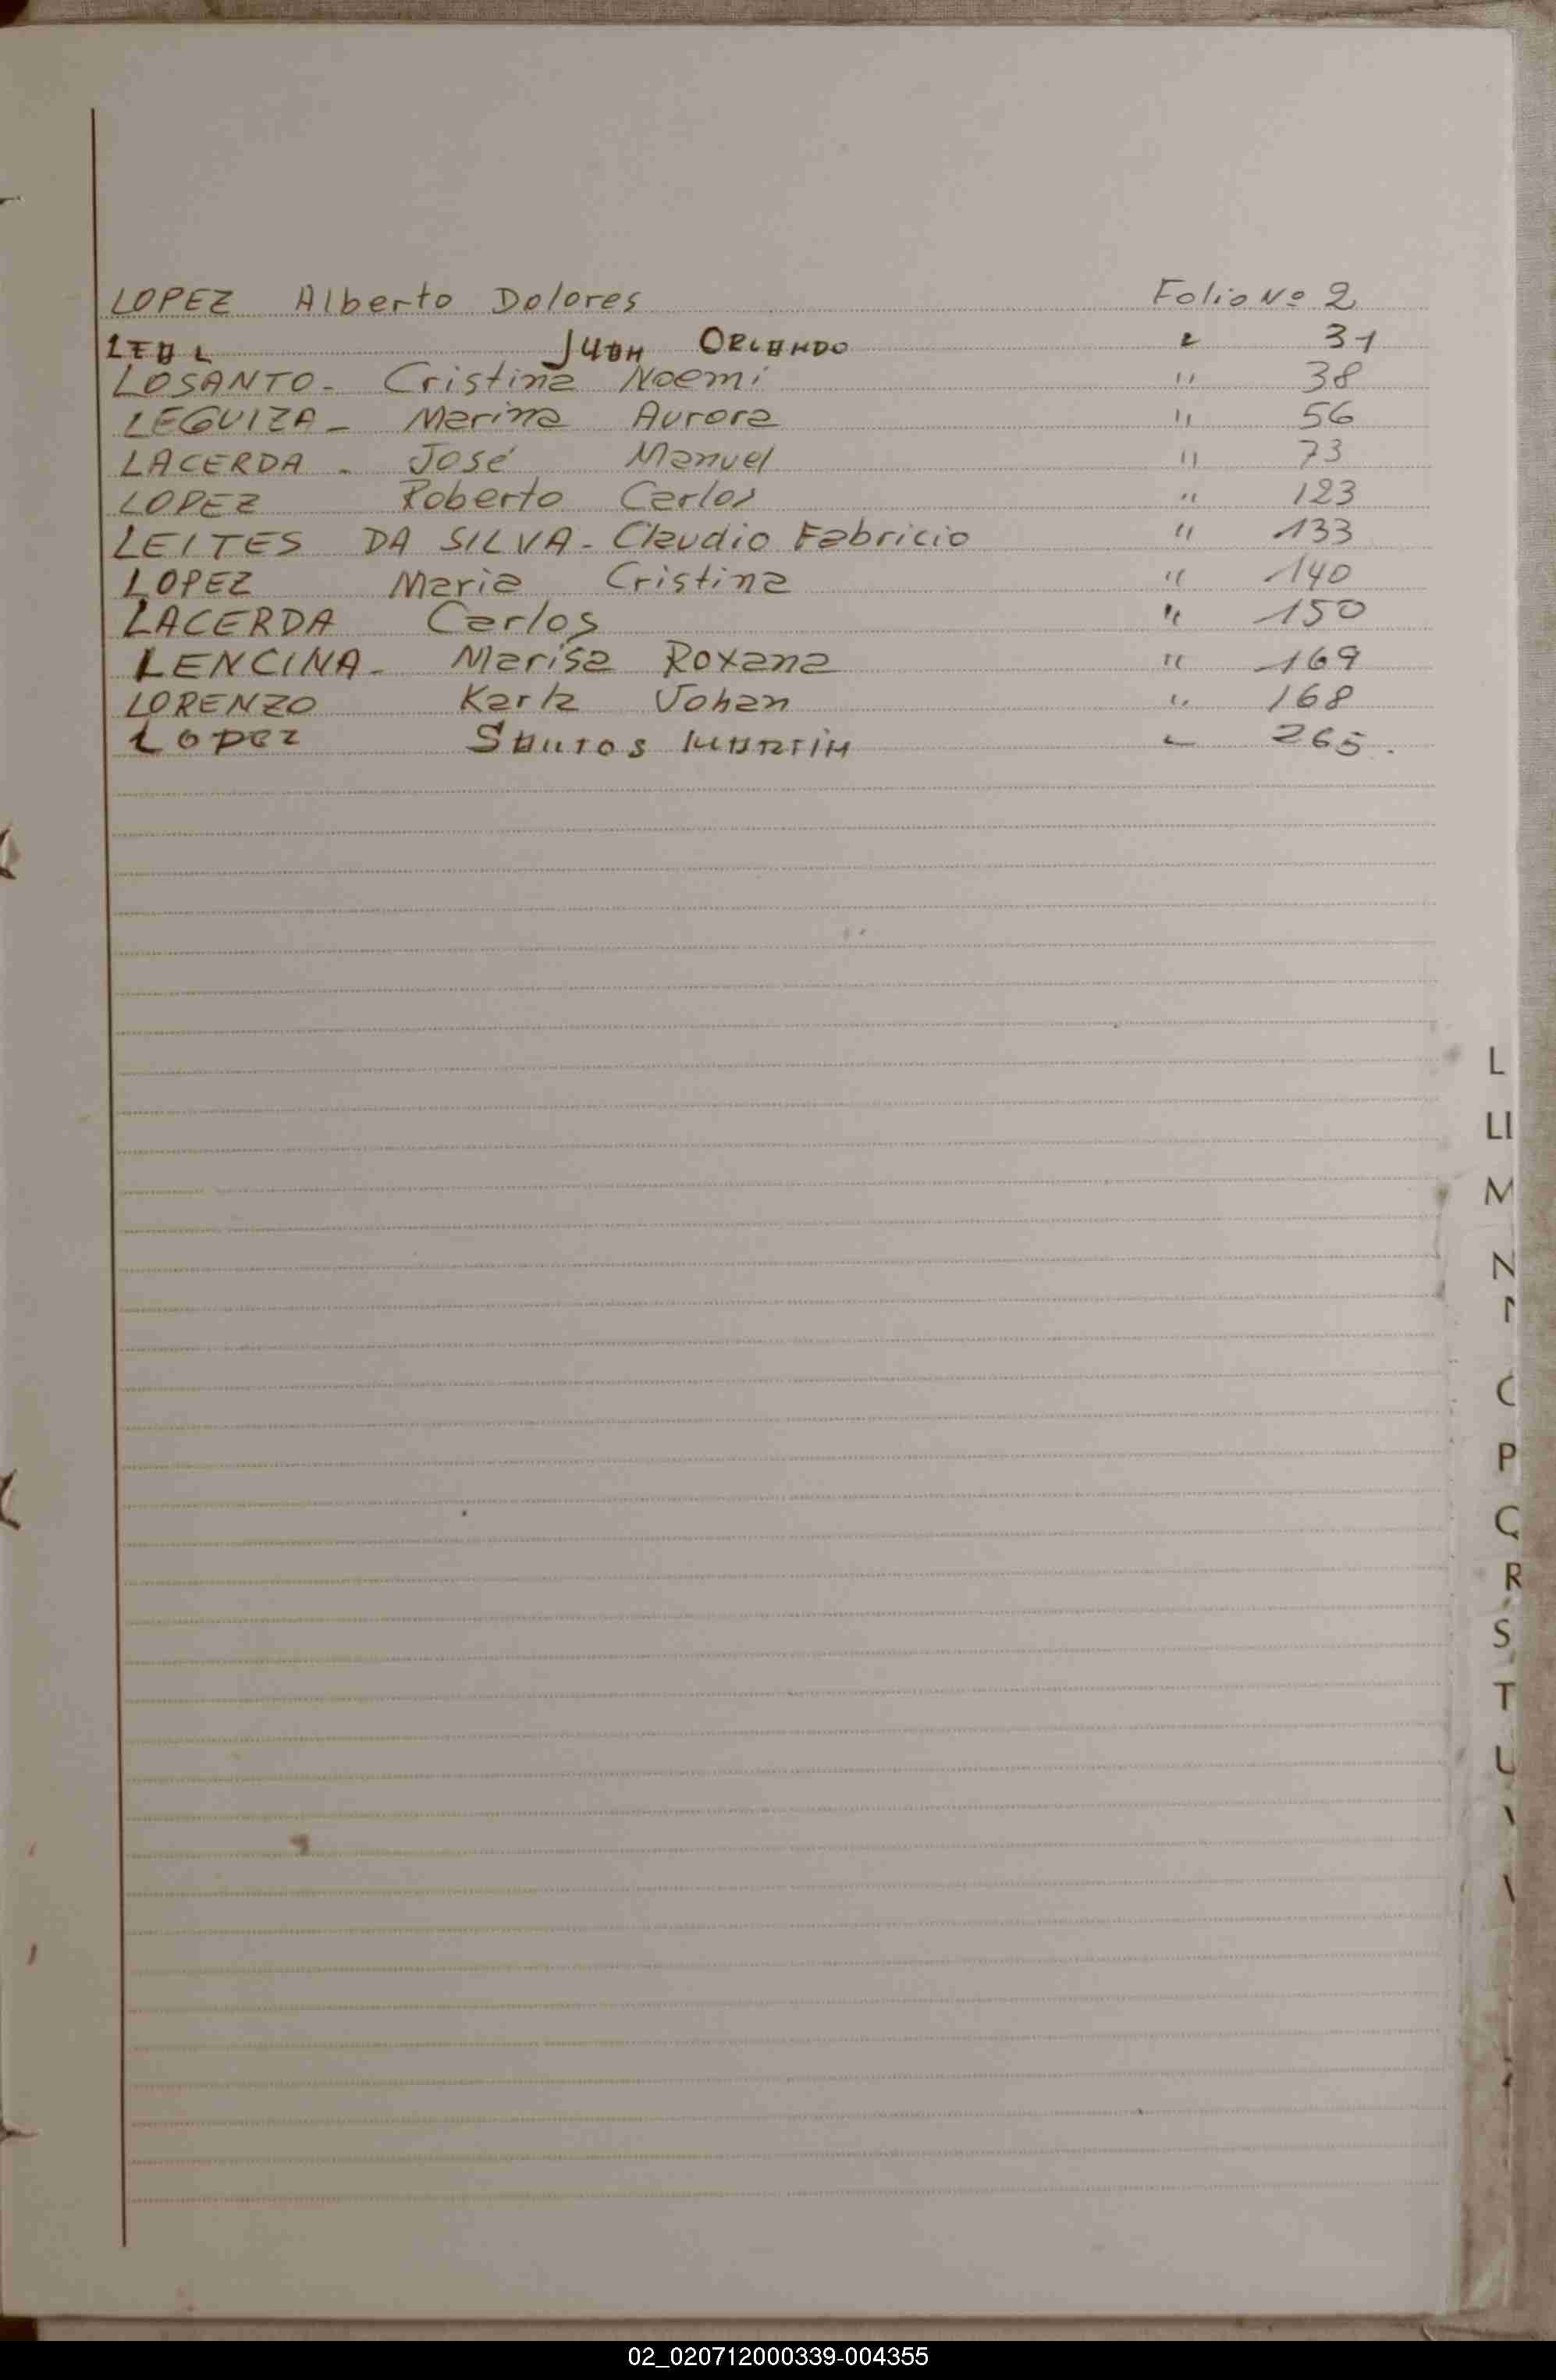 LOPEZ Alberto Dolores Folio Nº 2
LEAL JUAN ORLANDO " 31
LOSANTO - Cristina Noemi " 38
LEGUIZA - Marina Aurora " 56
LACERDA - José Manuel " 73
LOPEZ Roberto Carlos " 123
LEITES DA SILVA - Claudio Fabricio " 133
LOPEZ Maria Cristina " 140
LACERDA Carlos " 150
LENCINA - Marisa Roxana " 169
LORENZO Karla Johan " 168
Lopez SANTOS MARTIN " 265.
L
LI
M
N
C
P
Q
R
S
T
U
02_020712000339-004355